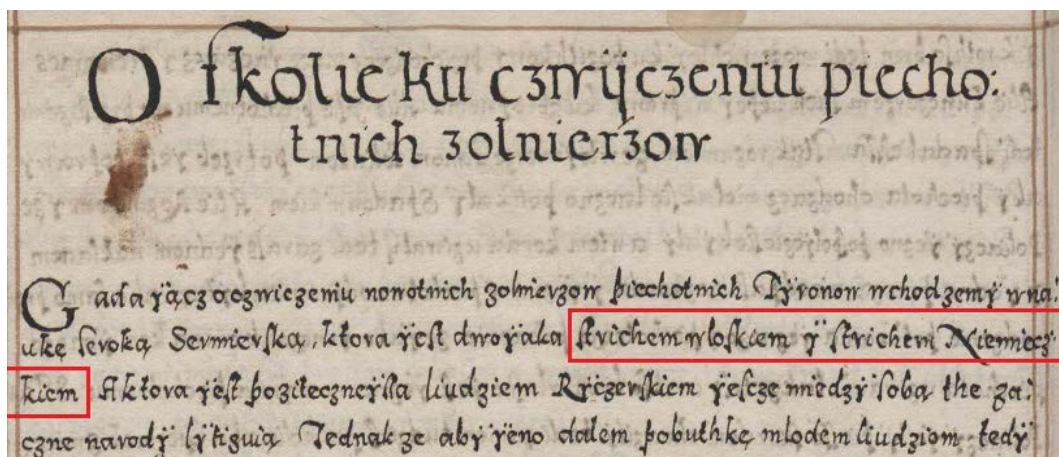 O ſkolie ku czwÿczeniu piecho:
tnich zolnierzow
Gadaÿącz o czwiczeniu nowotnich zolnierzow piechotnich Tÿronow wchodzemÿ w na:
ukę ſeroką Sermierſką, ktora ÿeſt dwoÿaka ſtrichem wloſkiem ÿ ſtrichem Niemiecz:
kiem Aktora ÿeſt poziteczneÿſſa liudziem Rÿczerſkiem ÿeſcze miedzÿ ſobą the za:
czne narodÿ lÿtiguią Jednakze abÿ ÿeno dalem pobuthkę mlodem liudziom tedÿ